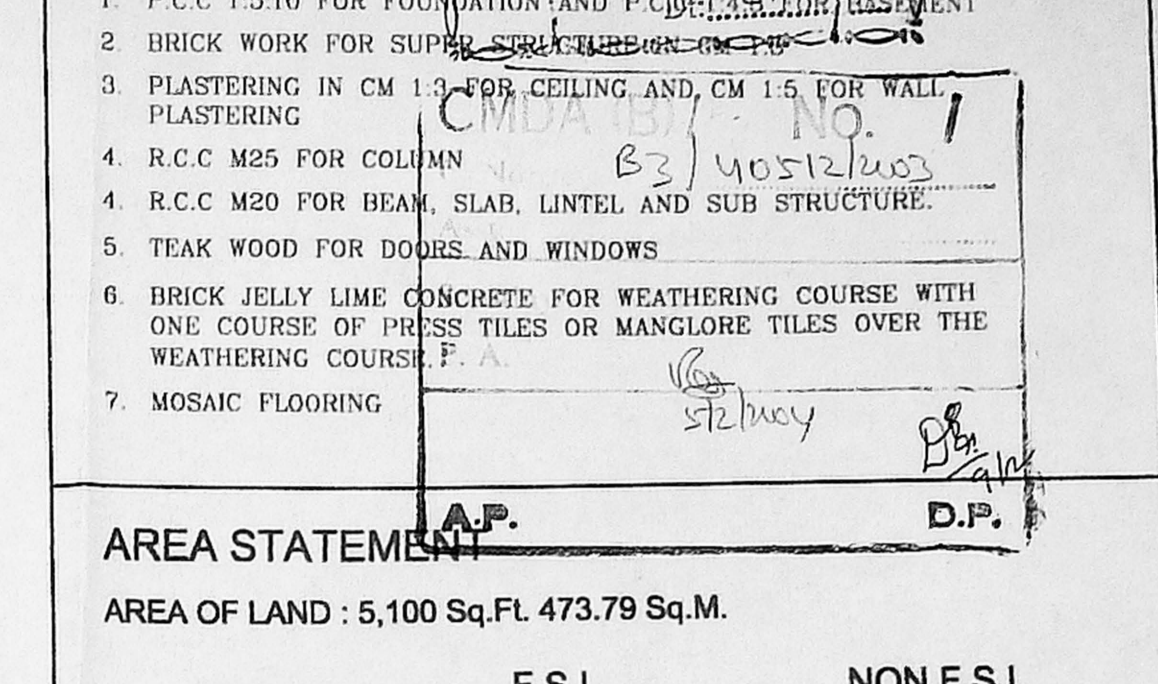 1. P.C.C 1:5:10 FOR FOUNDATION AND P.C.C 1:4:8 FOR BASEMENT
2. BRICK WORK FOR SUPER STRUCTURE IN CM 1:5
3. PLASTERING IN CM 1:3 FOR CEILING AND CM 1:5 FOR WALL
PLASTERING
CMDA (B) No.
4. R.C.C M25 FOR COLUMN
B3/40512/2003
4. R.C.C M20 FOR BEAM, SLAB, LINTEL AND SUB STRUCTURE.
5. TEAK WOOD FOR DOORS AND WINDOWS
6. BRICK JELLY LIME CONCRETE FOR WEATHERING COURSE WITH
ONE COURSE OF PRESS TILES OR MANGLORE TILES OVER THE
WEATHERING COURSE.
P. A.
7. MOSAIC FLOORING
5/2/2004
9/2
A.P. D.P.
AREA STATEMENT
AREA OF LAND : 5,100 Sq.Ft. 473.79 Sq.M.
F.S.I NON F.S.I